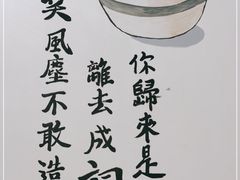 你歸來是
離去成詞
笑風塵不敢造